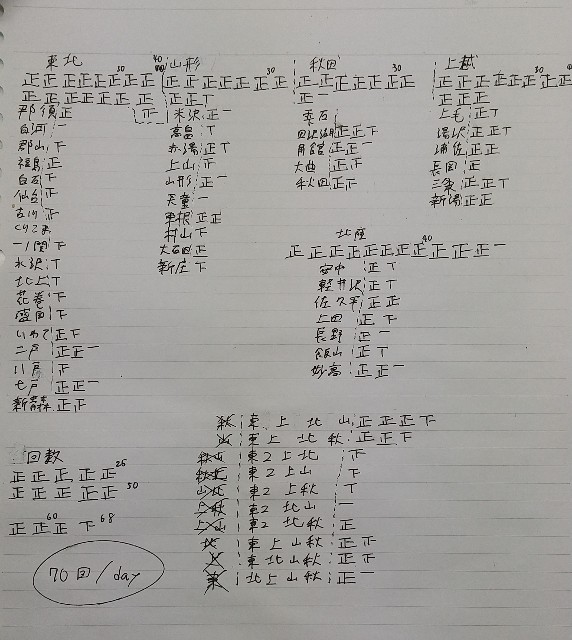 東北
30
40
正正正正正正正正
正正正正正正正正正
那須 正
白河 一
郡山 下
福島 正
白石 下
仙台 下
古川 正
くりこま
一ノ関 下
水沢 T
北上 T
花巻 下
盛岡 下
いわて 正下
二戸 正正一
八戸 下
七戸 正正一
新青森 正正
山形
30
正正正正正正正
正正T
米沢 正一
高畠 T
赤湯 正T
上山 正下
山形 正一
天童 一
東根 正正
村山 下
大石田 正
新庄 下
秋田
30
正正正正正正正
正一
雫石
田沢湖 正正下
角館 正正一
大曲 正下
秋田 正下
上越
30
正正正正正正正正
正正正
上毛 正T
湯沢 正正T
浦佐 正正
長岡 正
三条 正正T
新潟 正正
北陸
40
正正正正正正正正正正正一
安中 正T
軽井沢 正T
佐久平 正正
上田 正下
長野 正一
飯山 正T
妙高 正正一
東 上 北 山 正正正下
東 上 北 秋 正正下
東2 上北 正
東2 上山 下
東2 上秋 T
東2 北山 一
東2 北秋 正
東 上山秋 正正
東 北山秋 正正
北上山秋 正一
回数
正正正正正 25
正正正正正 50
正正正下
60
68
70回/day